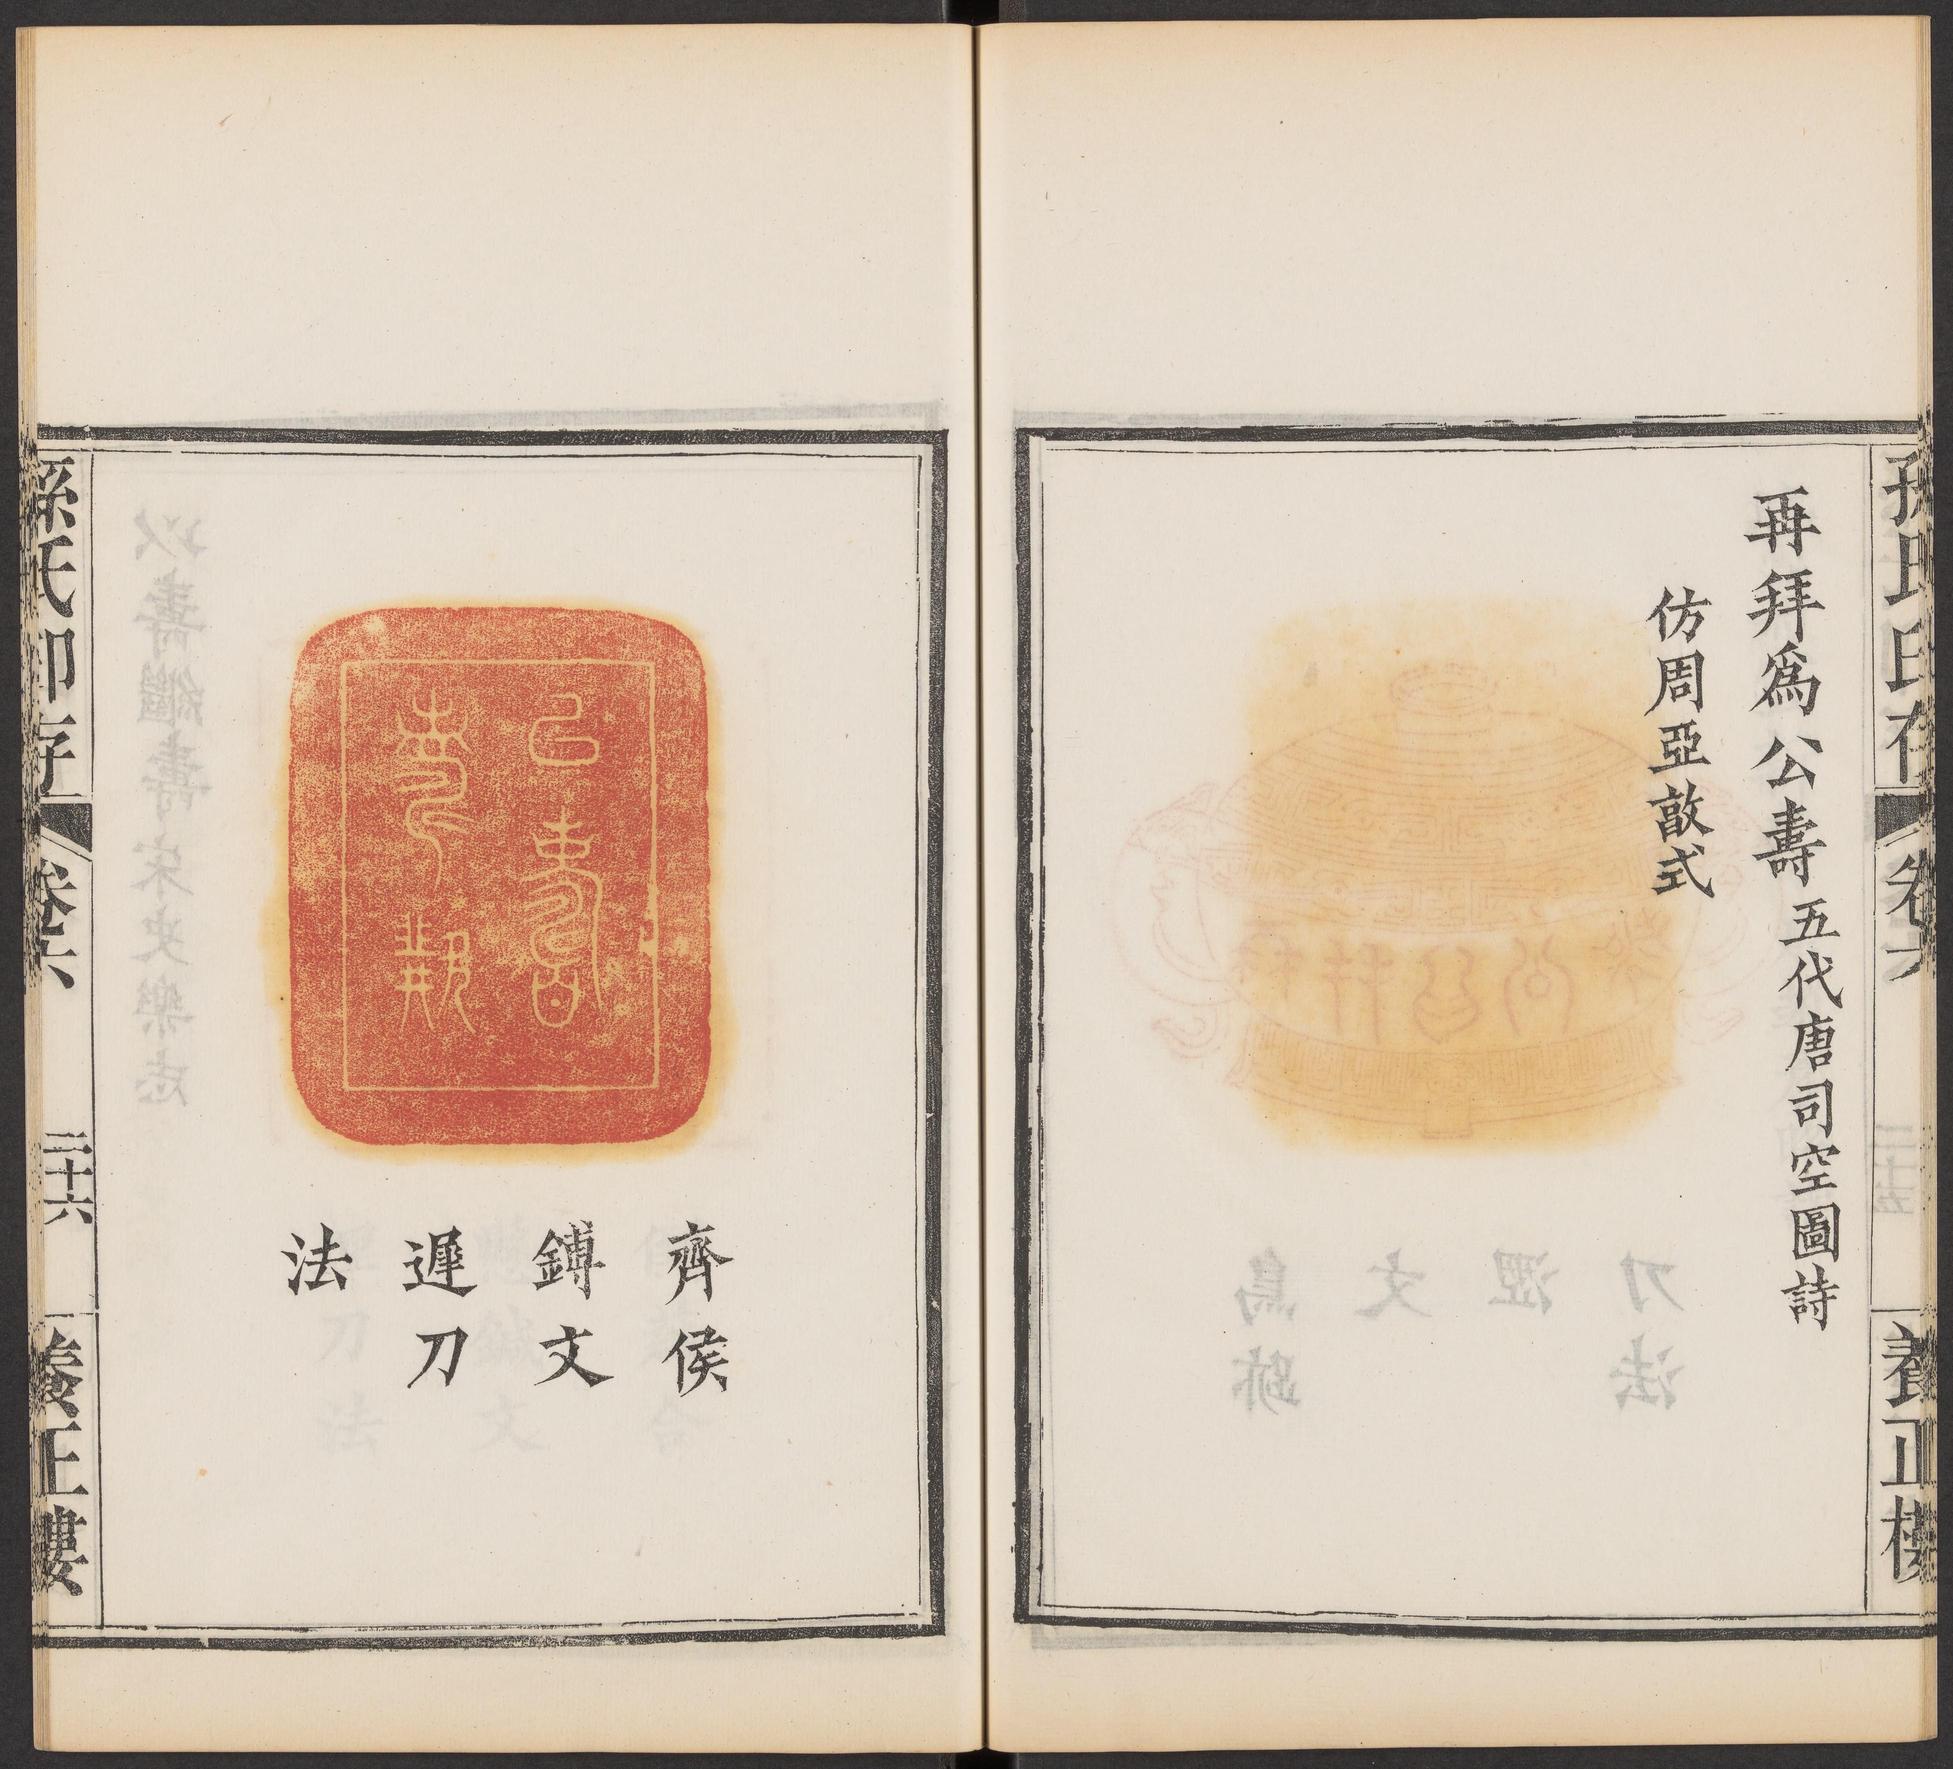 孫氏印存
卷六
養正樓
再拜爲公壽五代唐司空圖詩
仿周亞敦式
齊侯
鎛文
遲刀
法
孫氏印存
卷六
二十六
養正樓